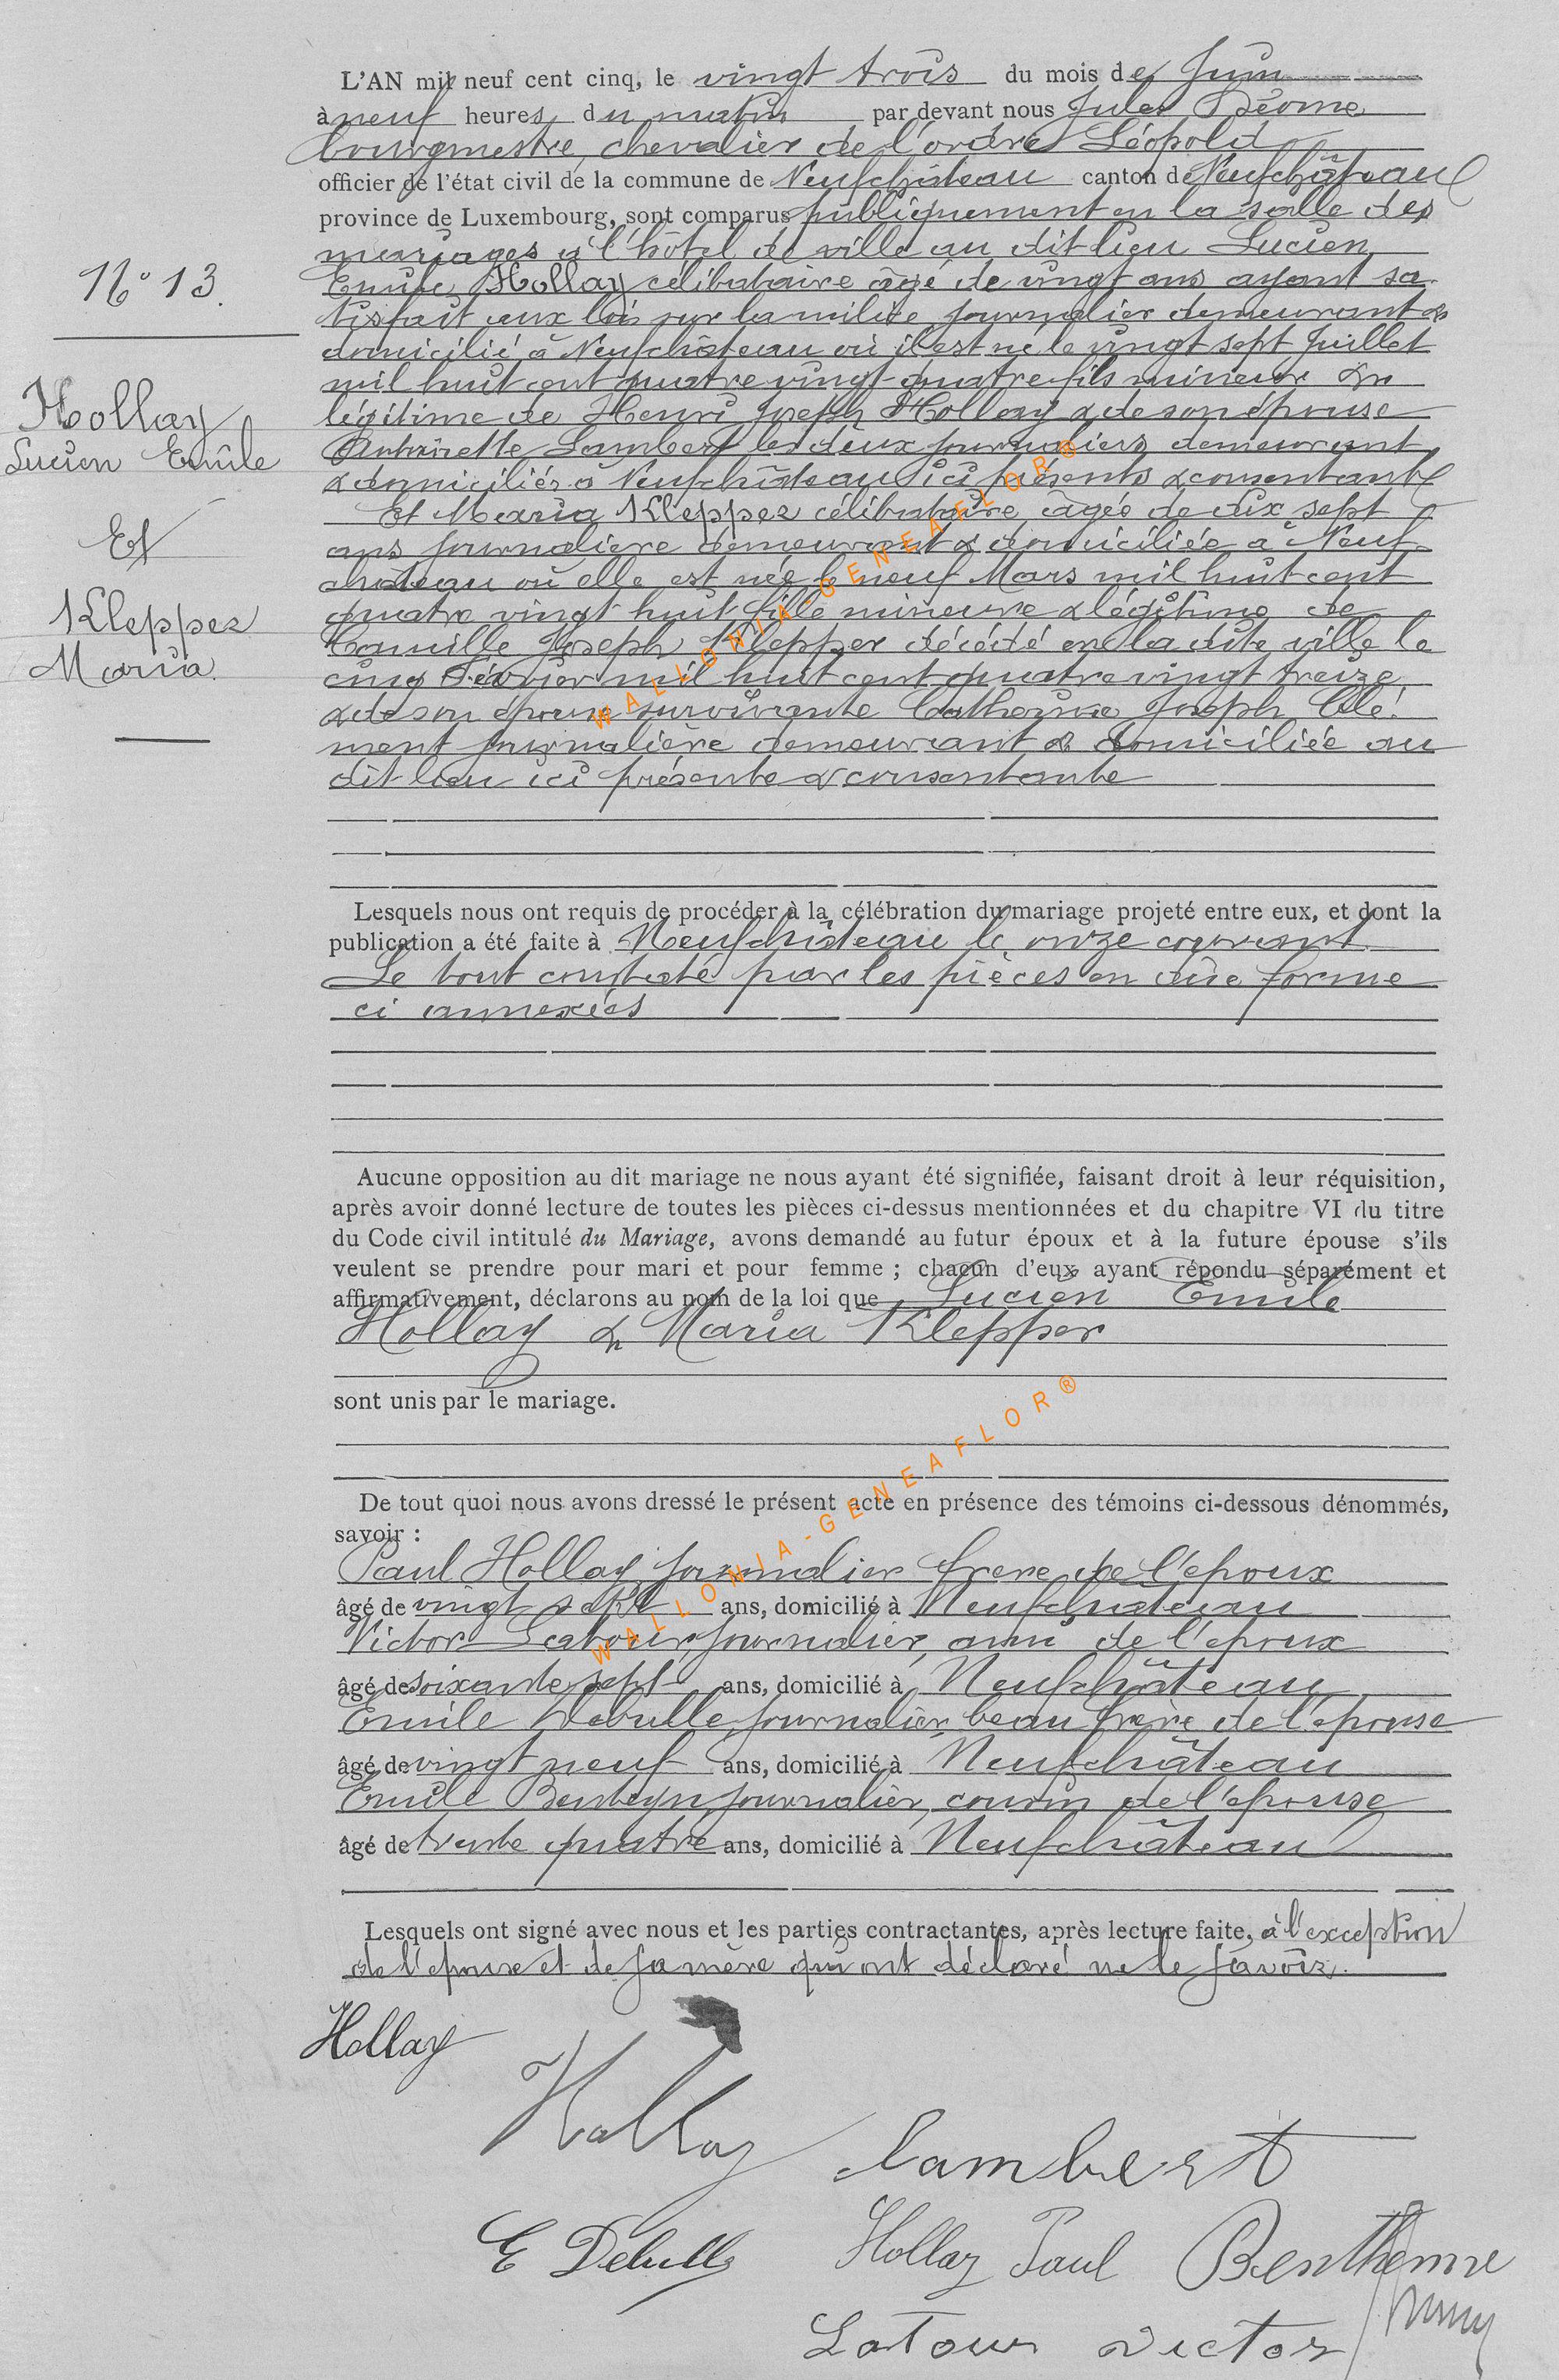 L'AN mil neuf cent cinq, le vingt trois du mois de Juin
à neuf heures du matin par devant nous Jules
bourgmestre, chevalier de l'ordre Léopold
officier de l'état civil de la commune de Neufchâteau canton de Neufchâteau
province de Luxembourg, sont comparus publiquement en la salle des
mariages à l'hôtel de ville au dit lieu Lucien
N° 13.
Emile Hollay célibataire âgé de vingt ans ayant sa
tisfait aux lois sur la milice journalier demeurant &
domicilié à Neufchâteau où il est né le vingt sept Juillet
mil huit cent quatre vingt-quatre fils mineur &
légitime de Henri Joseph Hollay & de son épouse
Hollay
Lucien Emile
Antoinette Lambert les deux journaliers demeurant
& domiciliés à Neufchâteau ici présents & consentants
Et Maria Klepper célibataire âgée de dix sept
Et
ans journalière demeurant & domiciliée à Neuf
château où elle est née le neuf Mars mil huit cent
quatre vingt huit fille mineure & légitime de
Klepper
Maria.
Camille Joseph Klepper décédé en la dite ville le
cinq Février mil huit cent quatre vingt treize
& de son épouse survivante Catherine Joseph Clé
ment journalière demeurant & domiciliée au
dit lieu ici présente & consentante
WALLONIA-GENEAFLOR®
Lesquels nous ont requis de procéder à la célébration du mariage projeté entre eux, et dont la
publication a été faite à Neufchâteau le onze courant
Le tout constaté par les pièces en due forme
ci annexées
Aucune opposition au dit mariage ne nous ayant été signifiée, faisant droit à leur réquisition,
après avoir donné lecture de toutes les pièces ci-dessus mentionnées et du chapitre VI du titre
du Code civil intitulé du Mariage, avons demandé au futur époux et à la future épouse s'ils
veulent se prendre pour mari et pour femme ; chacun d'eux ayant répondu séparément et
affirmativement, déclarons au nom de la loi que Lucien Emile
Hollay & Maria Klepper
sont unis par le mariage.
WALLONIA-GENEAFLOR®
De tout quoi nous avons dressé le présent acte en présence des témoins ci-dessous dénommés,
savoir :
Paul Hollay journalier frere de l'epoux
âgé de vingt sept ans, domicilié à Neufchateau
Victor Latour, journalier, ami de l'epoux
âgé de soixante sept ans, domicilié à Neufchâteau
Emile Debulle journalier beau frère de l'epouse
âgé de vingt neuf ans, domicilié à Neufchâteau
Emile journalier, cousin de l'epouse
âgé de trente quatre ans, domicilié à Neufchâteau
Lesquels ont signé avec nous et les parties contractantes, après lecture faite, à l'exception
de l'épouse et de sa mère qui ont déclaré ne le savoir.
Hollay
Hollay
Lambert
E Debulle Hollay Paul
Latour Victor